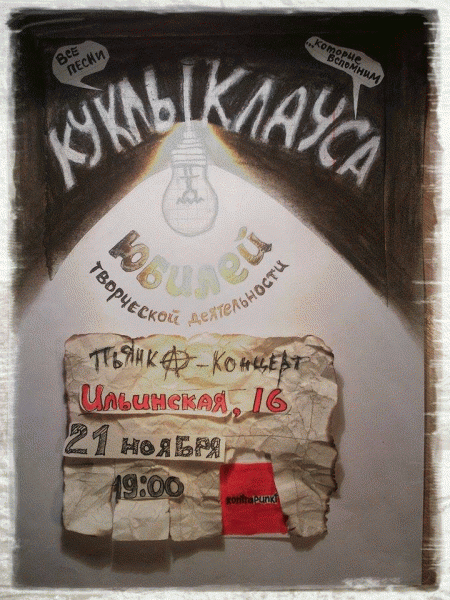 ВСЕ
ПЕСНИ
...которые
вспомним
КУКЛЫ КЛАУСА
Юбилей
творческой деятельности
Пьянка-концерт
Ильинская, 16
21 ноября
19:00
kontrapunkt